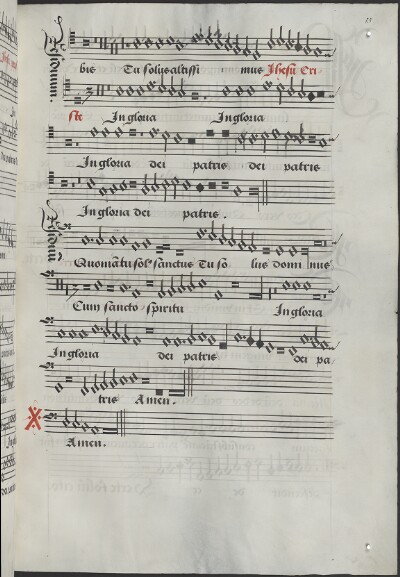 bis Tu solus altissi mus Jhesu Cri
ste In gloria In gloria
In gloria dei patris dei patris
In gloria dei patris .
Quoniā tu sol⁹ sanctus Tu so lus domi nus
Cum sancto spiritu In gloria
In gloria dei patris dei pa
tris Amen .
Amen .